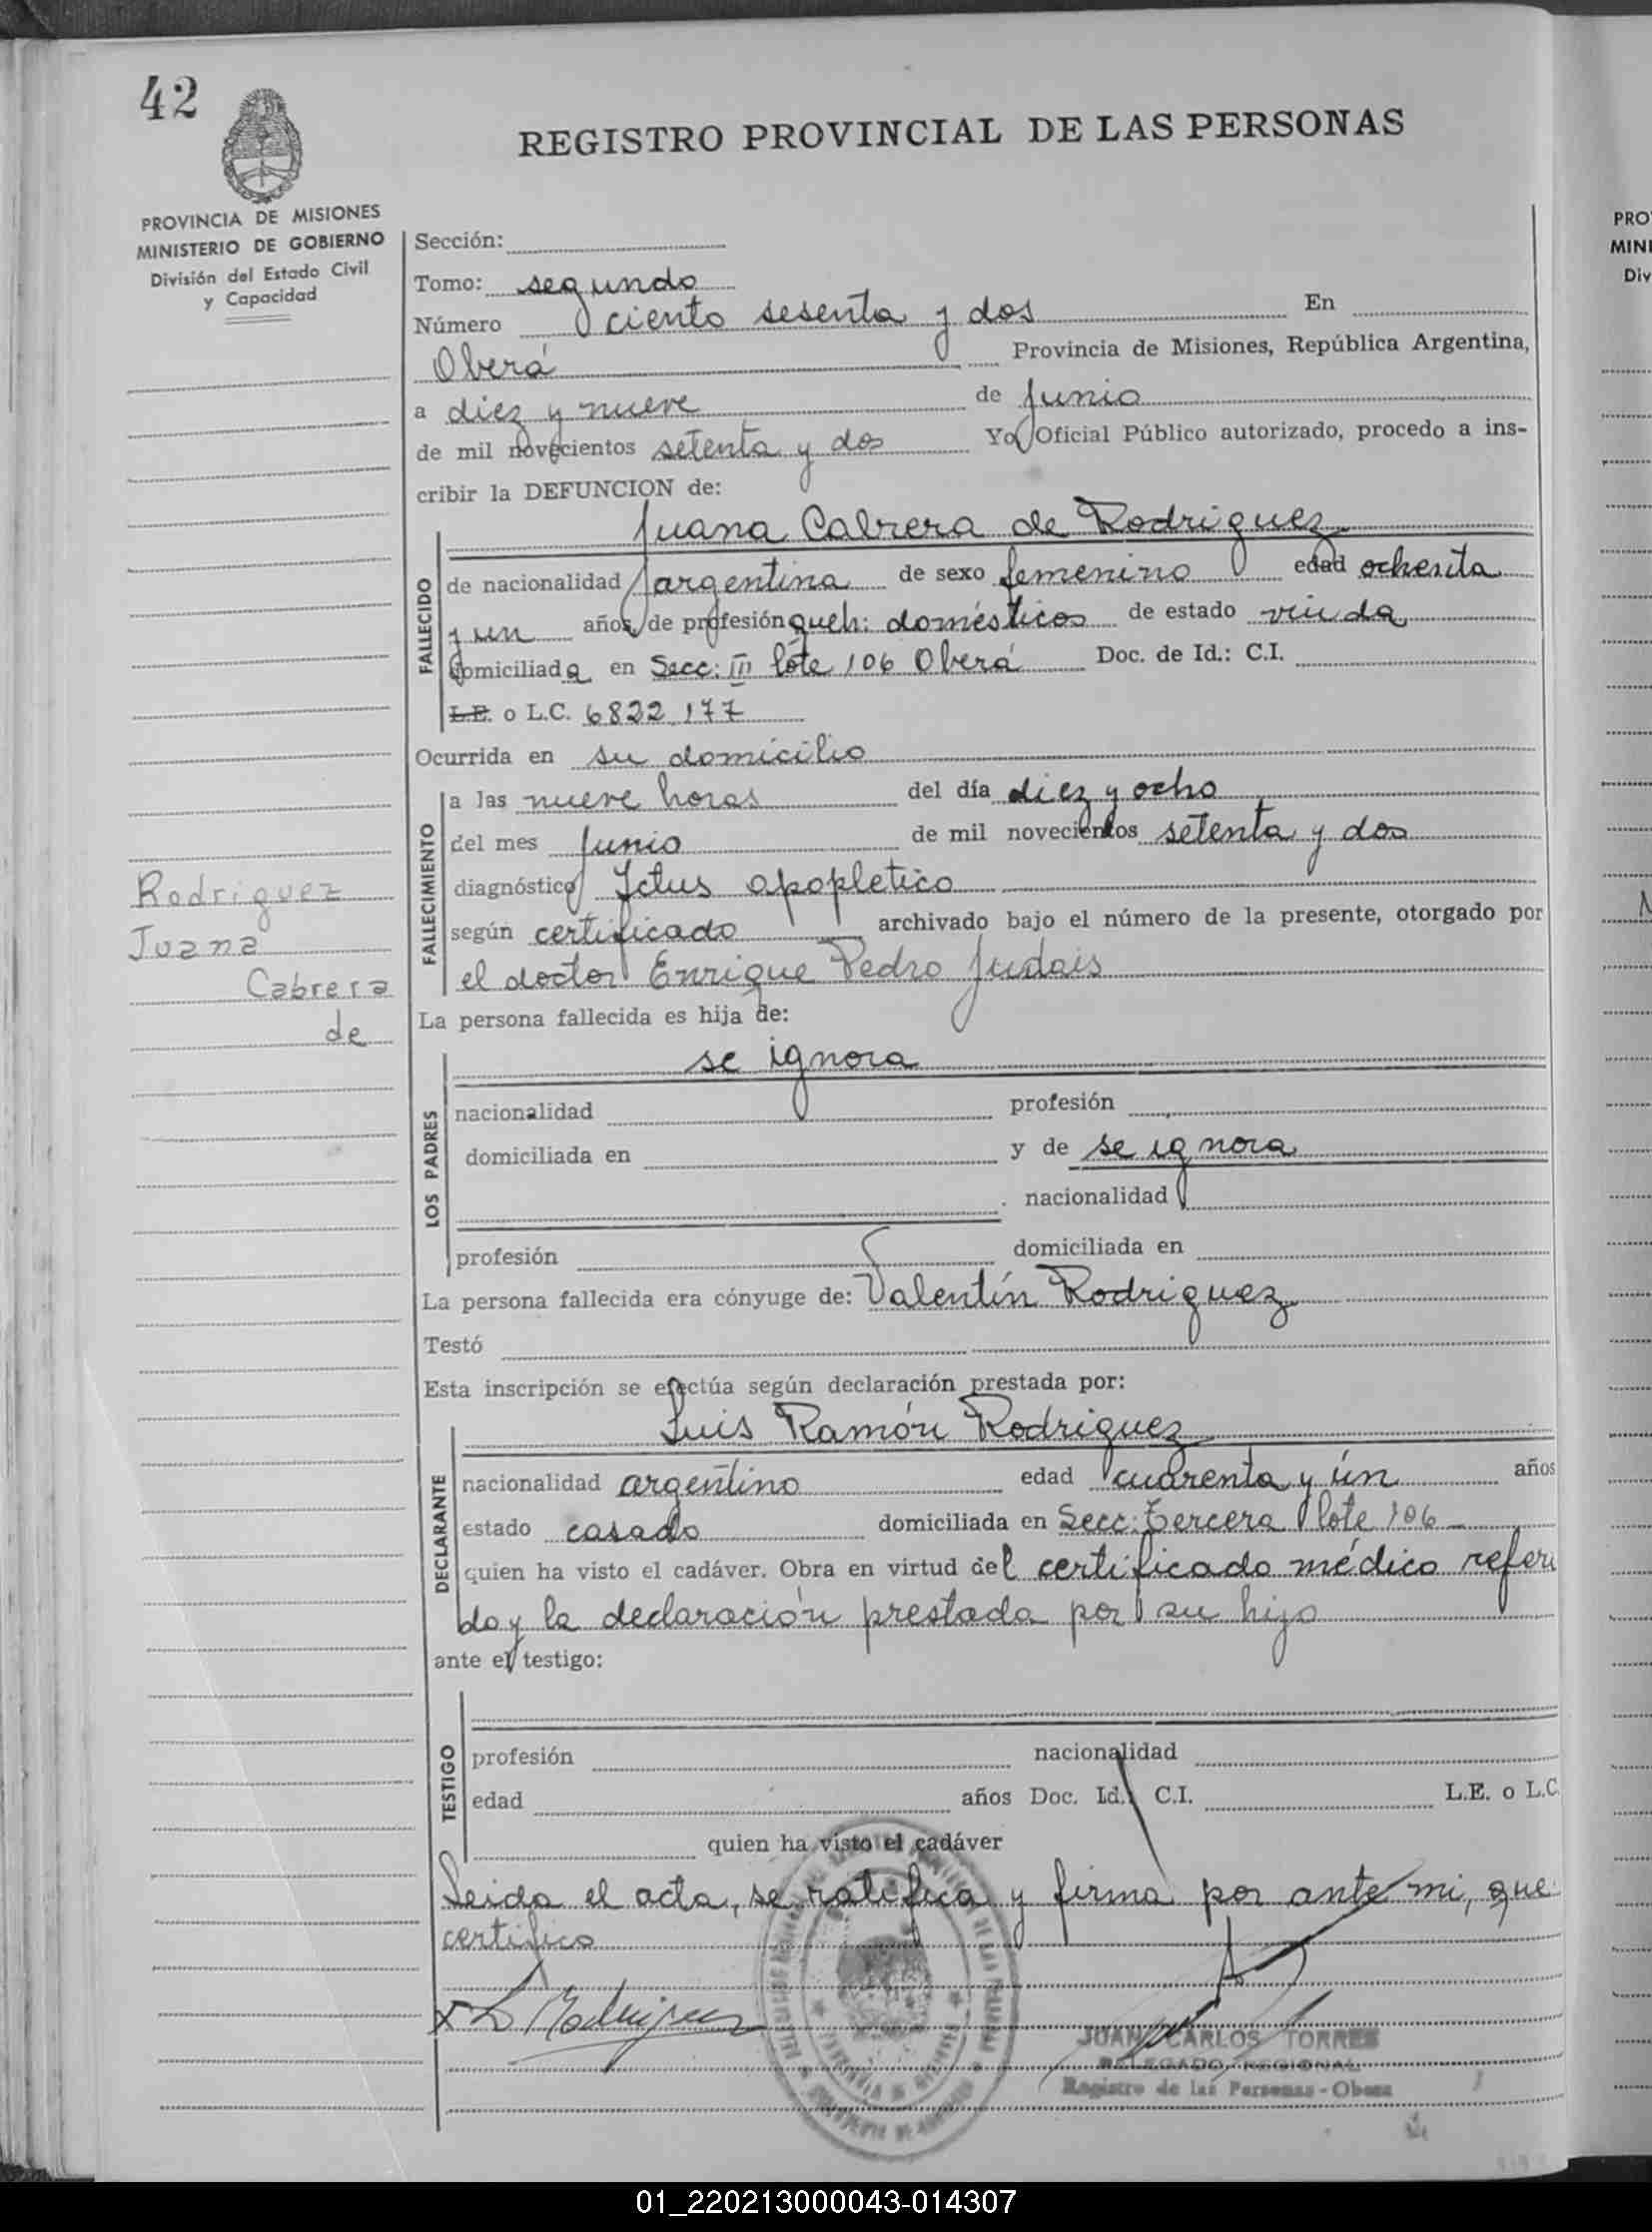 42
REGISTRO PROVINCIAL DE LAS PERSONAS
PROVINCIA DE MISIONES
MINISTERIO DE GOBIERNO
División del Estado Civil
y Capacidad
Sección:
Tomo: segundo
Número ciento sesenta y dos En
Oberá Provincia de Misiones, República Argentina,
a diez y nueve de Junio
de mil novecientos setenta y dos Yo, Oficial Público autorizado, procedo a ins-
cribir la DEFUNCION de:
Juana Cabrera de Rodriguez
FALLECIDO
de nacionalidad argentina de sexo femenino edad ochenta
y un años, de profesión queh: domésticos de estado viuda
domiciliada en Secc: III lote 106 Oberá Doc. de Id.: C.I.
L.E. o L.C. 6822.177
Ocurrida en su domicilio
FALLECIMIENTO
a las nueve horas del día diez y ocho
del mes Junio de mil novecientos setenta y dos
diagnóstico Ictus apopletico
según certificado archivado bajo el número de la presente, otorgado por
el doctor Enrique Pedro Judais
Rodriguez
Juana
Cabrera
de
La persona fallecida es hija de:
LOS PADRES
se ignora
nacionalidad profesión
domiciliada en y de se ignora
nacionalidad
profesión domiciliada en
La persona fallecida era cónyuge de: Valentín Rodriguez
Testó
Esta inscripción se efectúa según declaración prestada por:
DECLARANTE
Luis Ramón Rodriguez
nacionalidad argentino edad cuarenta y ún años
estado casado domiciliada en Secc: tercera lote 106
quien ha visto el cadáver. Obra en virtud del certificado médico referi
do y la declaración prestada por su hijo
ante el testigo:
TESTIGO
profesión nacionalidad
edad años Doc. Id. C.I. L.E. o L.C.
quien ha visto el cadáver
Leida el acta, se ratifica y firma por ante mi, que
certifico
x L Rodriguez
JUAN CARLOS TORRES
DELEGADO REGIONAL
Registro de las Personas - Obera
01_220213000043-014307